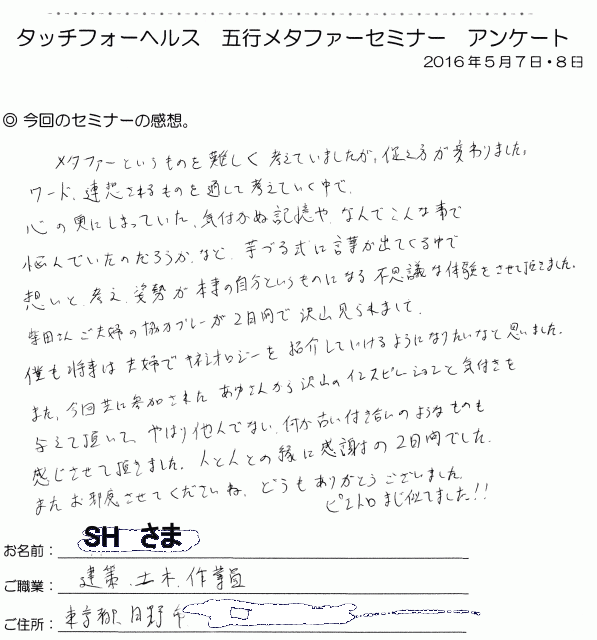 タッチフォーヘルス 五行メタファーセミナー アンケート
2016年5月7日・8日
◎ 今回のセミナーの感想。
メタファーというものを難しく考えていましたが、捉え方が変わりました。
ワード、連想されるものを通して考えていく中で、
心の奥にしまっていた、気付かぬ記憶や、なんでこんな事で
悩んでいたのだろうか、など、芋づる式に言葉が出てくる中で
想いと、考え、姿勢が本来の自分というものになる不思議な体験をさせて頂きました。
柴田さんご夫婦の協力プレーが2日間で沢山見られまして、
僕も将来は夫婦でキネシオロジーを紹介していけるようになりたいなと思いました。
また、今回共に参加された あゆさんから沢山のインスピレーションと気付きを
与えて頂いて、やはり他人でない、何か古い付き合いのようなものも
感じさせて頂きました。人と人との縁に感謝の2日間でした。
またお邪魔させてくださいね。どうもありがとうございました。
まじ似てました!!
お名前: SH さま
ご職業: 建築、土木、作業員
ご住所: 東京都、日野市